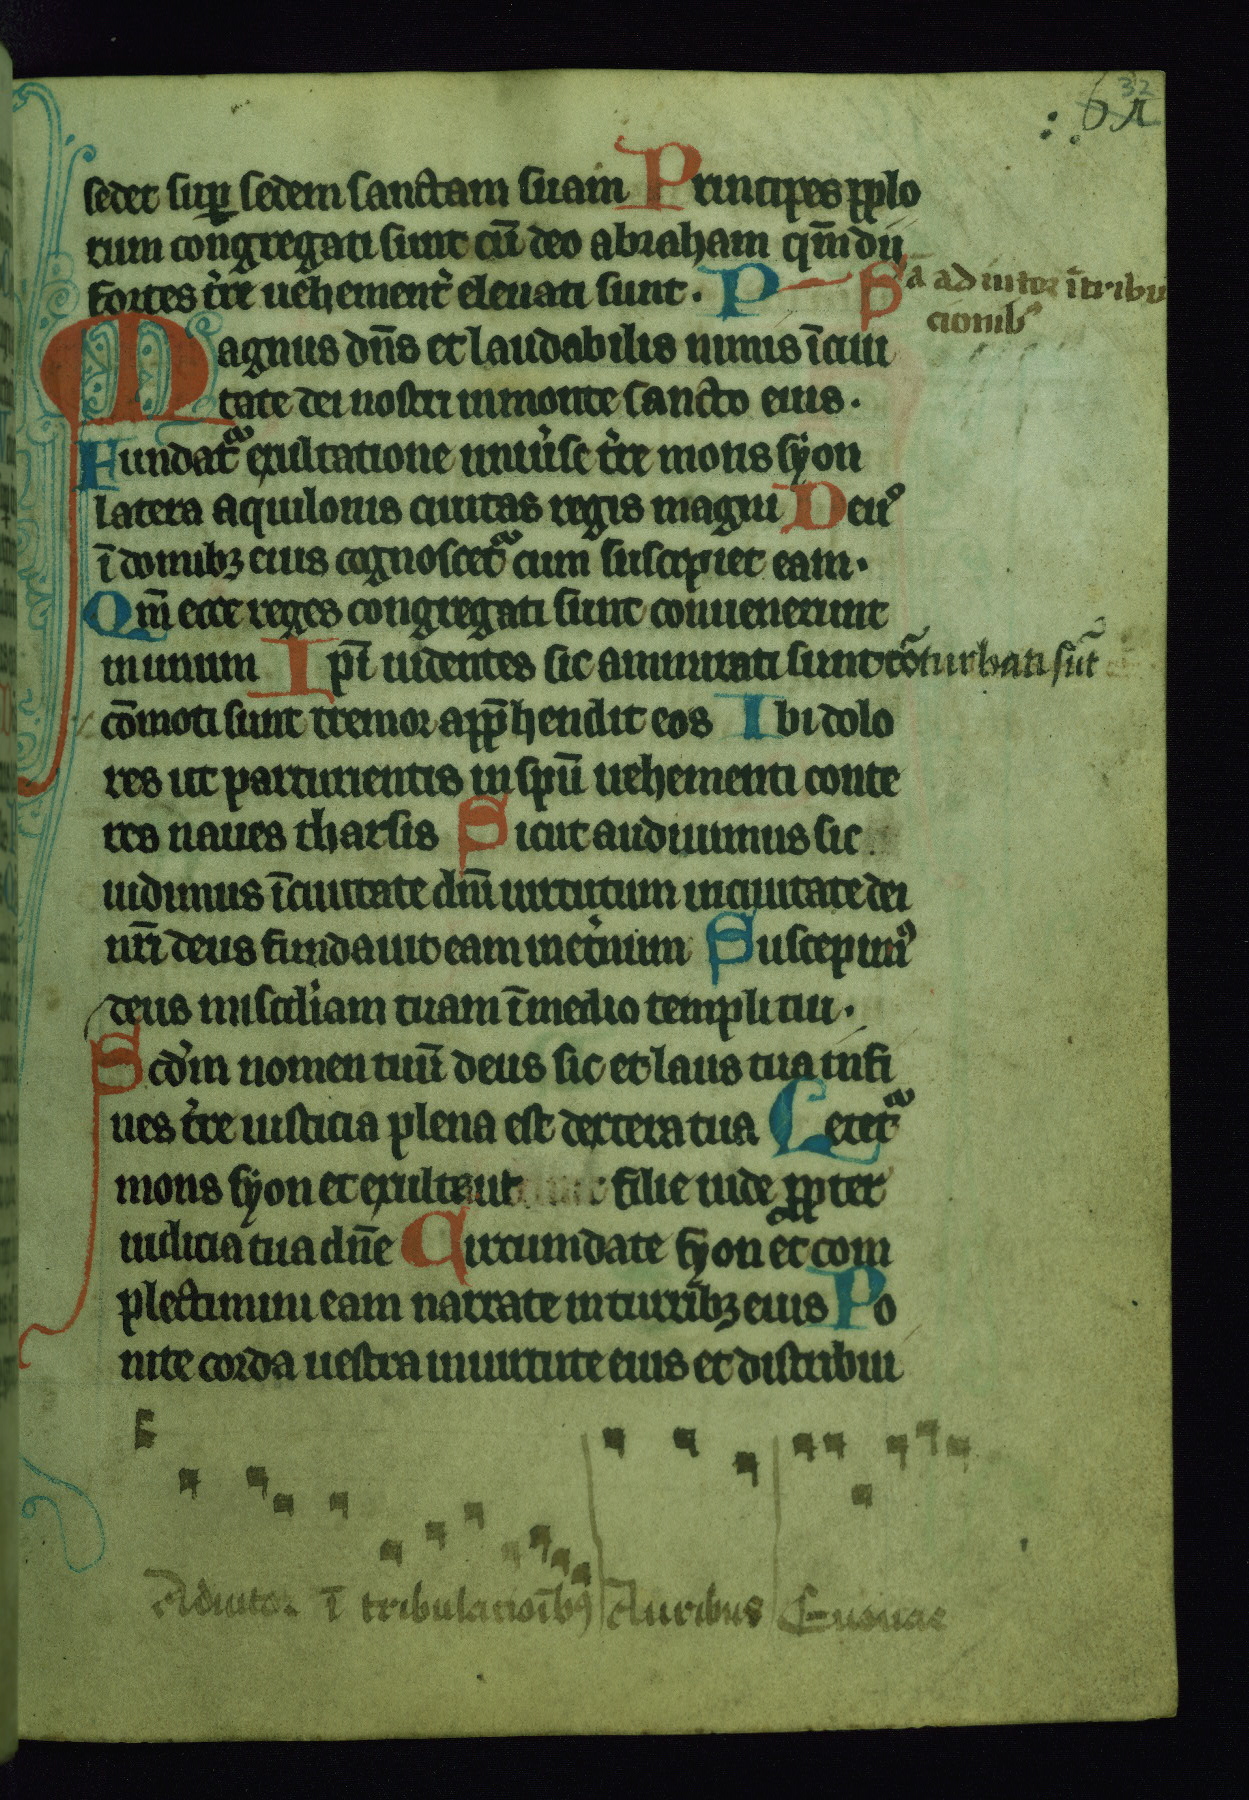 32
sedet sup sedem sanctam suam Principes pplo
rum congregati sunt cū deo abraham qm̄ dii
fortes tr̄re uehement̄ eleuati sunt. P S
ā adiutor ī tribu
cionibꝰ
Magnus dn̄s et laudabilis nimis ī ciui
tate dei nostri in monte sancto eius.
Fundatᷓ exultatione uniu̓se tr̄re mons syon
latera aquilonis ciuitas regis magni Deuꝰ
ī domibꝫ eius cognoscetᷓ cum suscipiet eam.
Qm̄ ecce reges congregati sunt conuenerunt
in unum Ipī uidentes sic ammirati sunt cōturbati sūt
cōmoti sunt tremor app̄hendit eos Ibi dolo
res ut parturientis in spū uehementi conte
res naues tharsis Sicut audiuimus sic
uidimus ī ciuitate dn̄i uirtutum in ciuitate dei
nr̄i deus fundauit eam in etn̄um Suscepimꝰ
deus misc̄diam tuam ī medio templi tui.
Scdm̄ nomen tuū deus sic et laus tua in fi
nes tr̄re iusticia plena est dextera tua Letetᷓ
mons syon et exultent filie iude ppter
iudicia tua dn̄e Circumdate syon et com
plectimini eam narrate in turribꝫ eius Po
nite corda uestra in uirtute eius et distribui
Adiutor ī tribulationībꝰ Auribus Euouae